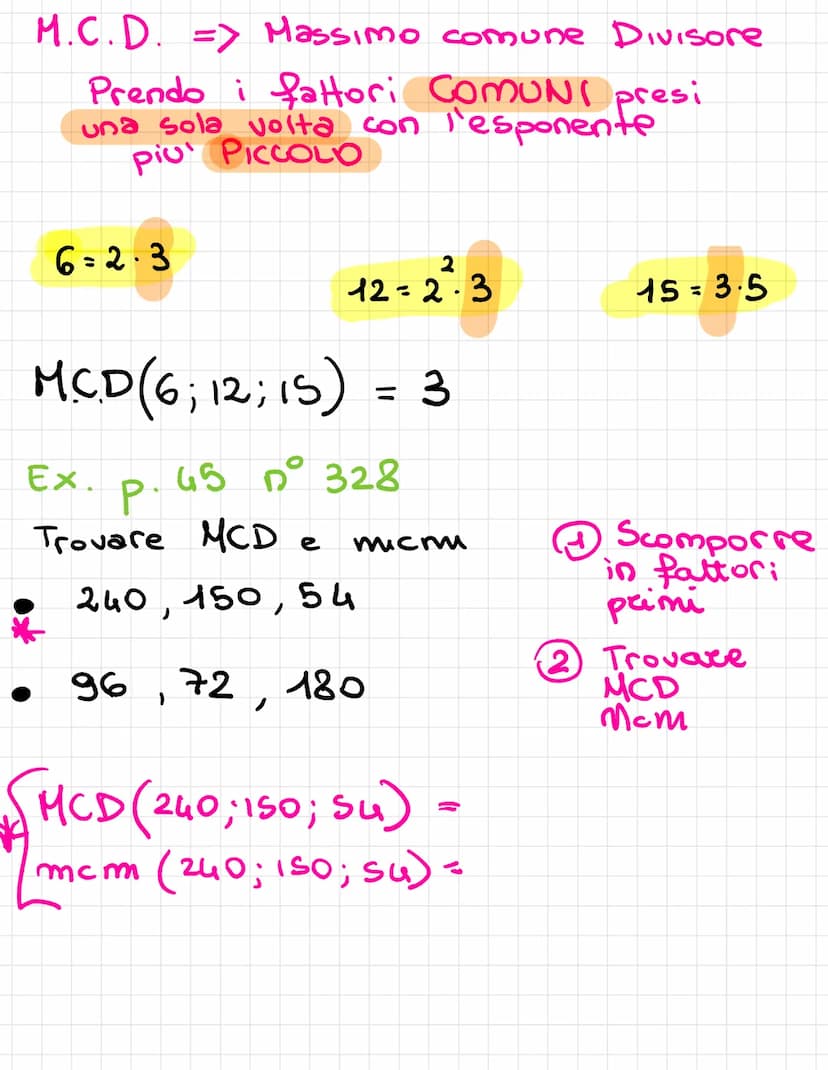 M.C.D. => Massimo comune Divisore
Prendo i fattori COMUNI presi
una sola volta con l'esponente
piu' PICCOLO
6 = 2 · 3
12 = 2² · 3
15 = 3 · 5
M.C.D(6; 12; 15) = 3
Ex. p. 45 n° 328
Trovare MCD e mcm
• 240, 150, 54
*
• 96, 72, 180
① Scomporre
in fattori
primi
② Trovare
MCD
Mcm
* MCD(240; 150; 54) =
mcm (240; 150; 54) =